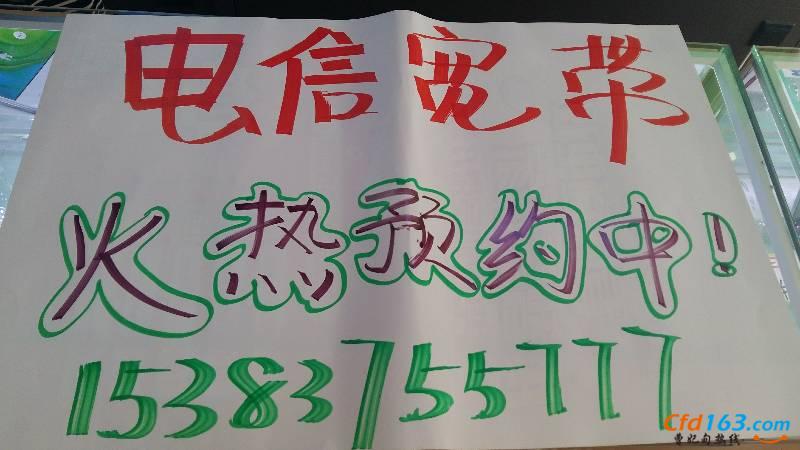 电信宽带
火热预约中！
15383755777
Cfd163.com
曹妃甸热线